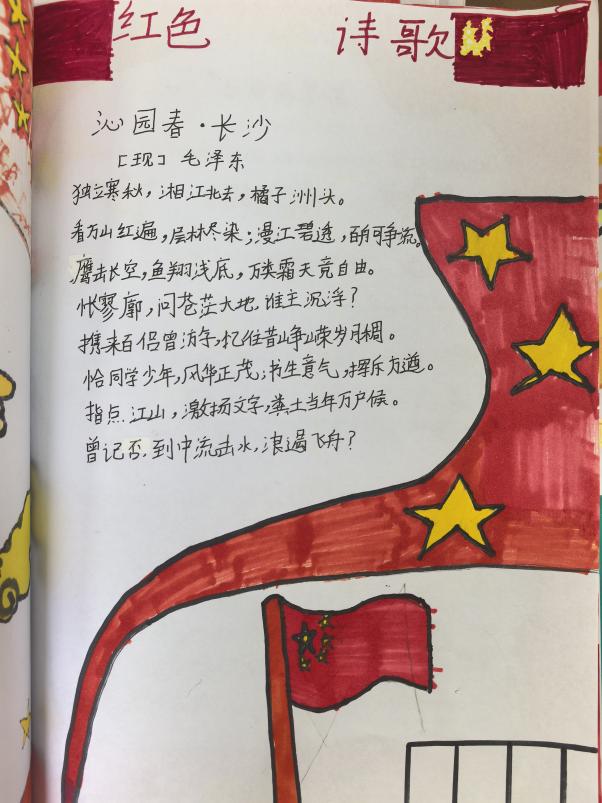 红色 诗歌
沁园春·长沙
[现] 毛泽东
独立寒秋，湘江北去，橘子洲头。
看万山红遍，层林尽染；漫江碧透，百舸争流。
鹰击长空，鱼翔浅底，万类霜天竞自由。
怅寥廓，问苍茫大地，谁主沉浮？
携来百侣曾访争，忆往昔峥嵘岁月稠。
恰同学少年，风华正茂；书生意气，挥斥方遒。
指点江山，激扬文字，粪土当年万户侯。
曾记否，到中流击水，浪遏飞舟？